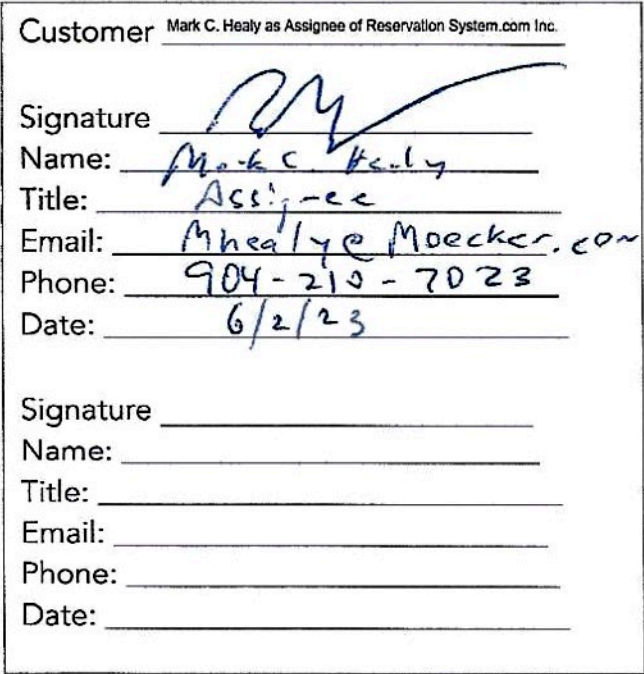 Customer Mark C. Healy as Assignee of Reservation System.com Inc.
Signature
Name: Mark C. Healy
Title: Assignee
Email: Mhealy@Moecker.com
Phone: 904-210-7023
Date: 6/2/23
Signature
Name:
Title:
Email:
Phone:
Date: